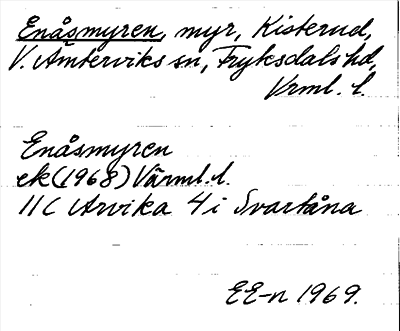 Enåsmyren, myr, Kisterud,
V. Ämterviks sn, Fryksdals hd,
Vrml. l.
Enåsmyren
ek (1968) Värml. l.
11C Arvika 4 i Svartåna
EE-n 1969.